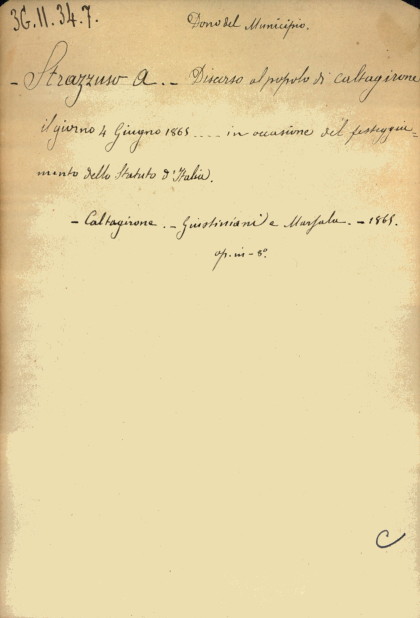 3G.II.34.7.
Dono del Municipio.
- Strazzuso A. - Discorso al popolo di Caltagirone
il giorno 4 Giugno 1865 .... in occasione del festeggia=
mento dello Statuto d'Italia.
- Caltagirone. - Giustiniani e Marsala. - 1865.
op. in - 8°.
C